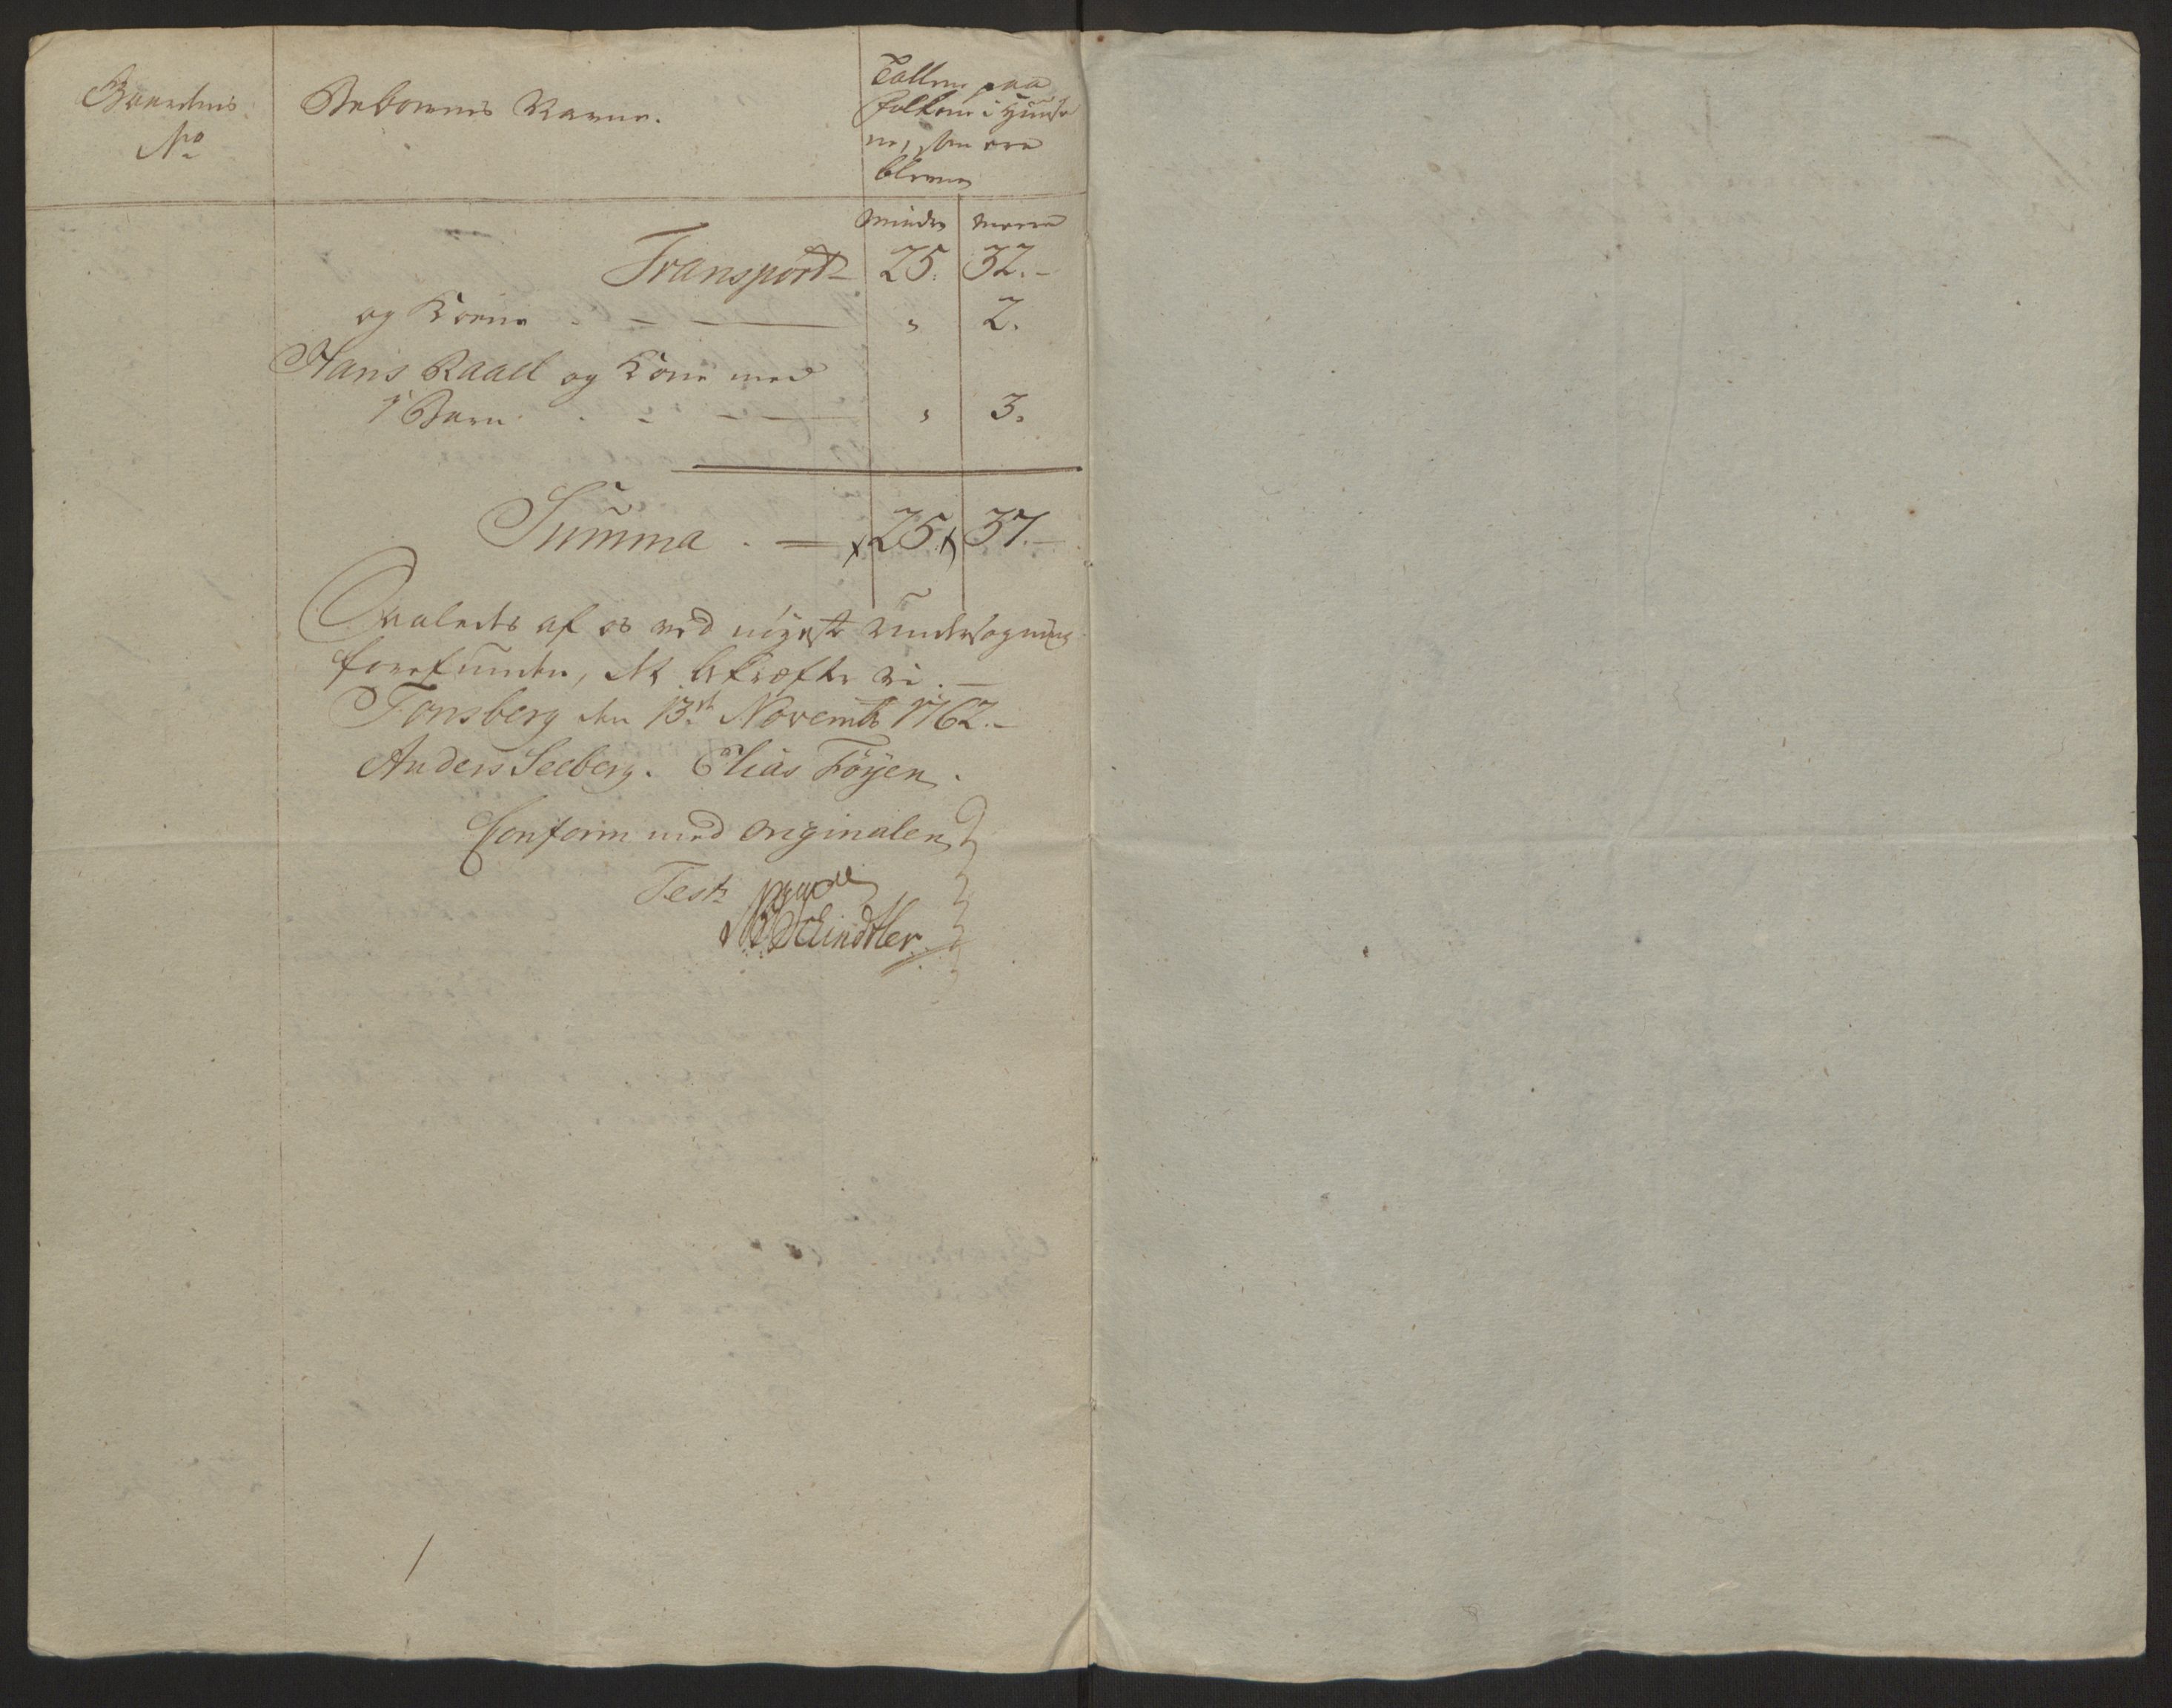 Gaardens
No
Beboernes Navne.
Tallene paa
Folkene i Huuse
ne, som ere
blevne
minder meere
Transport 25. 32.
og Kone - - - " 2.
Hans Raael og Kone med
1 Barn - - - " 3.
Summa . = 25. 37.
Saaledes af os ved nøyeste undersøgning
forefunden, det bekræfter vi.
Tonsberg den 13de Novembr 1762.
Anders Seeberg. Elias Föyen.
Conform med Originalen
Test